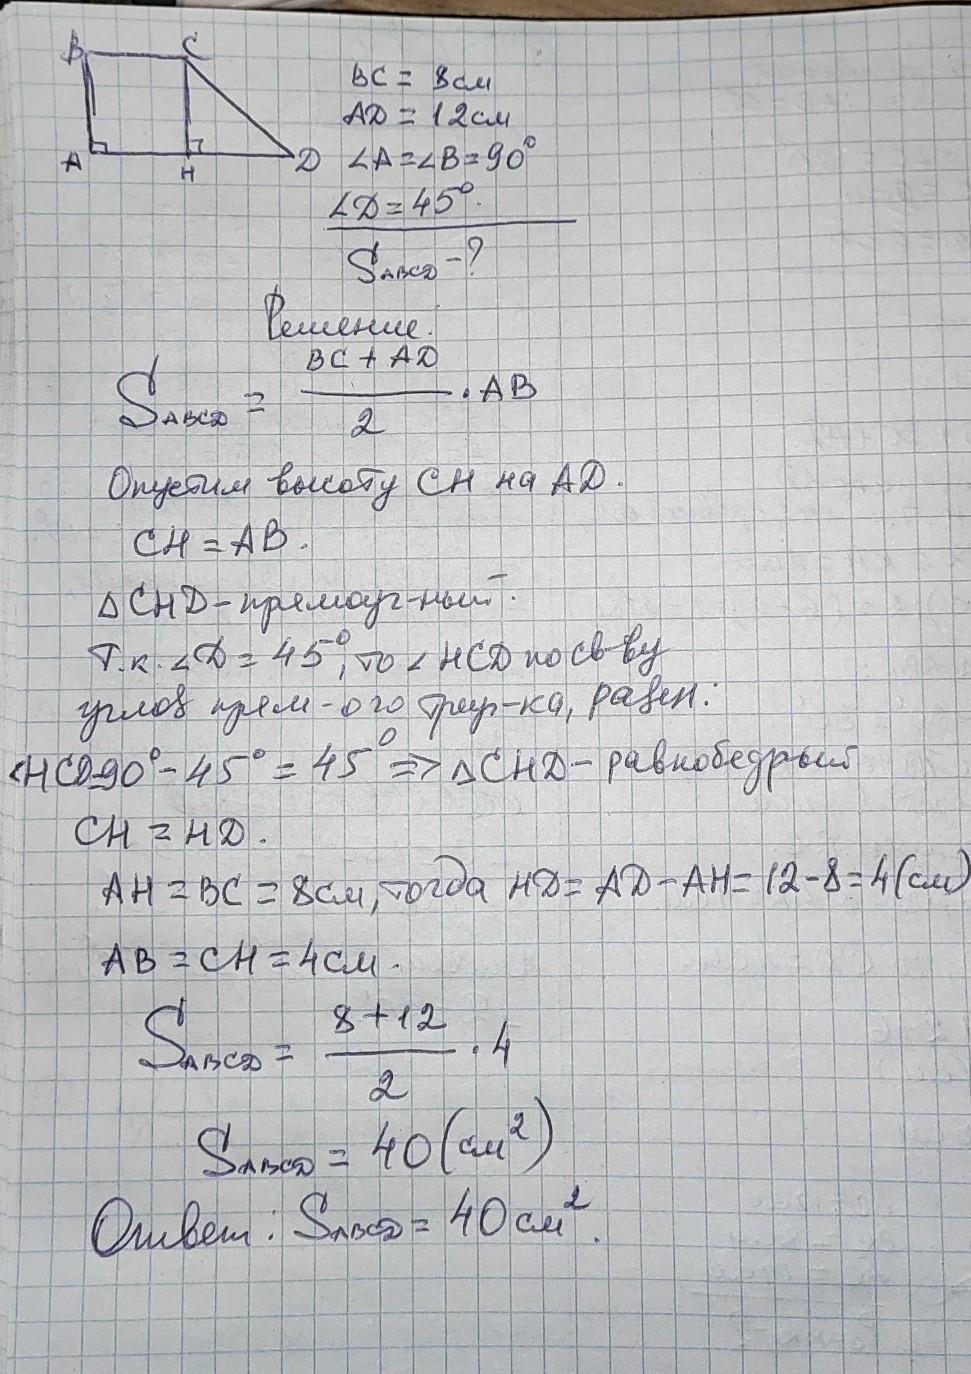 B C
A H D
BC = 8см
AD = 12см
∠A = ∠B = 90°
∠D = 45°.
S_ABCD - ?
Решение:
S_ABCD = (BC + AD)/2 · AB
Опустим высоту CH на AD.
CH = AB.
△CHD - прямоуг-ный.
Т.к. ∠D = 45°, то ∠HCD по св-ву
углов прям-ого треуг-ка, равен:
∠HCD=90° - 45° = 45° => △CHD - равнобедрый
CH = HD.
AH = BC = 8см, тогда HD = AD - AH = 12 - 8 = 4 (см)
AB = CH = 4см.
S_ABCD = (8 + 12)/2 · 4
S_ABCD = 40 (см²)
Ответ: S_ABCD = 40 см².